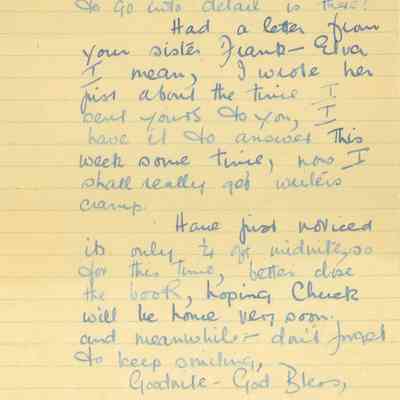 to go into detail is there!
Had a letter from
your sister Frank – Elva
I mean, I wrote her
just about the time I
sent yours to you, I
have it to answer this
week some time, now I
shall really get writers
cramp.
Have just noticed
its only ¼ of midnite, so
for this time, better close
the book, hoping Chuck
will be home very soon.
and meanwhile – don't forget
to keep smiling,
Goodnite – God Bless,